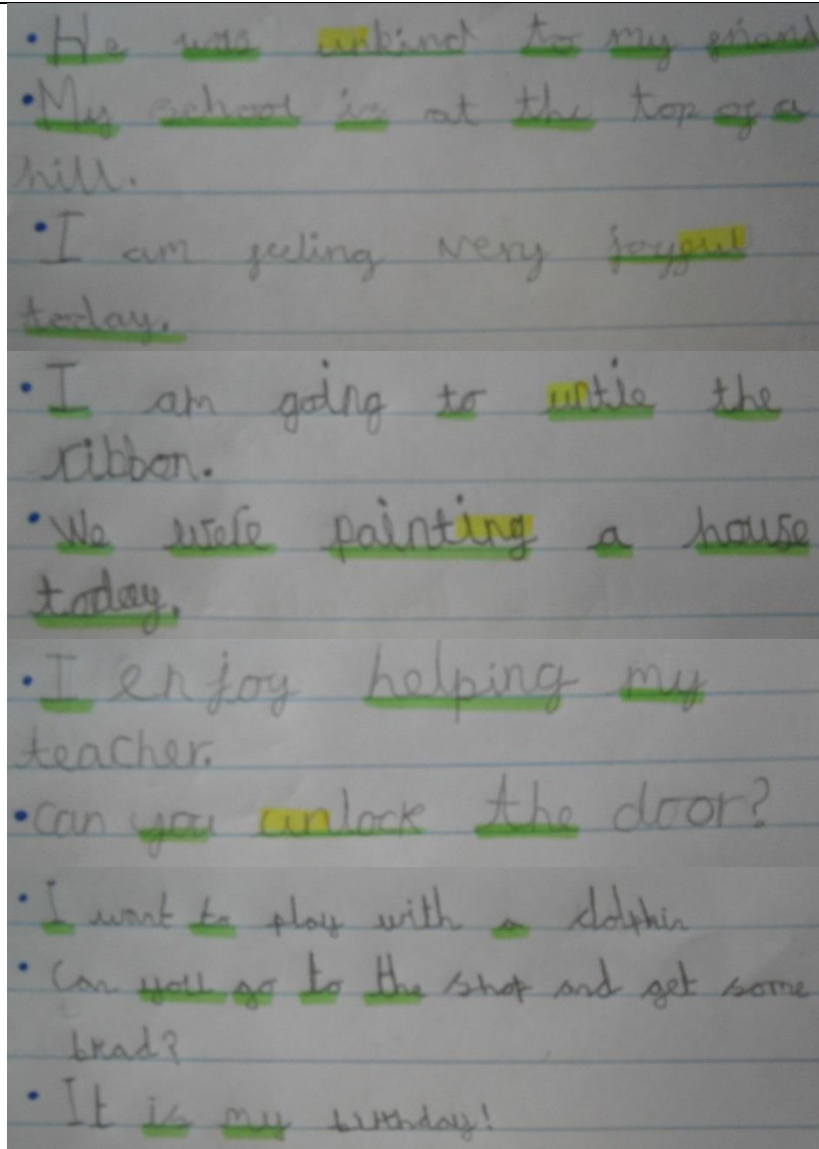 • He was unkind to my friend
• My school is at the top of a
hill.
• I am feeling very joyful
today.
• I am going to untie the
ribbon.
• We were painting a house
today.
• I enjoy helping my
teacher.
• Can you unlock the door?
• I want to play with a dolphin
• Can you go to the shop and get some
bread?
• It is my birthday!